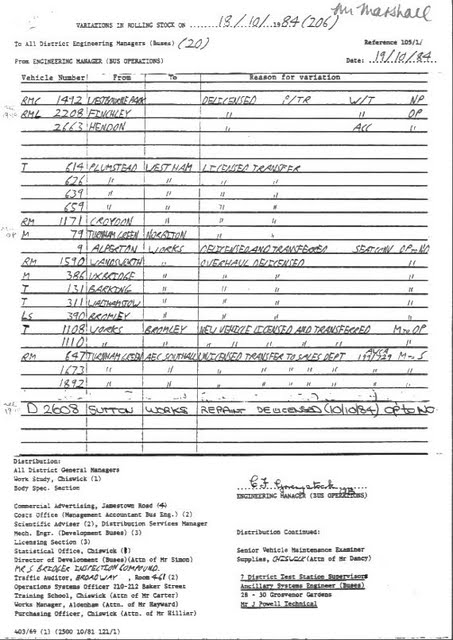 Mr Marshall
VARIATIONS IN ROLLING STOCK ON 18/10/1984 (206)
To All District Engineering Managers (Buses) (20) Reference 109/1/
From ENGINEERING MANAGER (BUS OPERATIONS) Date: 19/10/84
Vehicle Number From To Reason for variation
RMC 1492 WESTBOURNE PARK DELICENSED P/TR W/T NP
RML 2208 FINCHLEY " " OP
2663 HENDON " ACC "
T 614 PLUMSTEAD WEST HAM LICENSED TRANSFER
626 " " " "
639 " " " "
659 " " " "
RM 1171 CROYDON " " "
M 79 TURNHAM GREEN NORBITON " "
9 ALPERTON WORKS DELICENSED AND TRANSFERRED OP-ND
RM 1590 WANDSWORTH " OVERHAUL DELICENSED " "
M 386 UXBRIDGE " " " " "
T 131 BARKING " " " " "
T 311 WALTHAMSTOW " " " " "
LS 390 BROMLEY " " " " "
T 1108 WORKS BROMLEY NEW VEHICLE LICENSED AND TRANSFERRED M~OP
1110 " " " " " " "
RM 647 TURNHAM GREEN AEC SOUTHALL UNLICENSED TRANSFER TO SALES DEPT M~S
1673 " " " " " " "
1892 " " " " " " "
D 2608 SUTTON WORKS REPAINT DELICENSED (10/10/84) OP to NO
Distribution:
All District General Managers
Work Study, Chiswick (1)
Body Spec. Section
ENGINEERING MANAGER (BUS OPERATIONS)
Commercial Advertising, Jamestown Road (4)
Costs Office (Management Accountant Bus Eng.) (2)
Scientific Adviser (2), Distribution Services Manager
Mech. Engr. (Development Buses) (3) Distribution Continued:
Licensing Section (3)
Statistical Office, Chiswick Senior Vehicle Maintenance Examiner
Director of Development (Buses)(Attn of Mr Simon) Supplies, CHISWICK (Attn of Mr Dancy)
MR S. BRIDGER INSPECTION COMPOUND.
Traffic Auditor, BROADWAY, Room 461 (2) 7 District Test Station Supervisors
Operations Systems Officer 210-212 Baker Street Ancillary Systems Engineer (Buses)
Training School, Chiswick (Attn of Mr Carter) 28 - 30 Grosvenor Gardens
Works Manager, Aldenham (Attn of Mr Hayward) Mr J Powell Technical
Purchasing Officer, Chiswick (Attn of Mr Hillier)
403/69 (1) (1500 10/81 121/1)